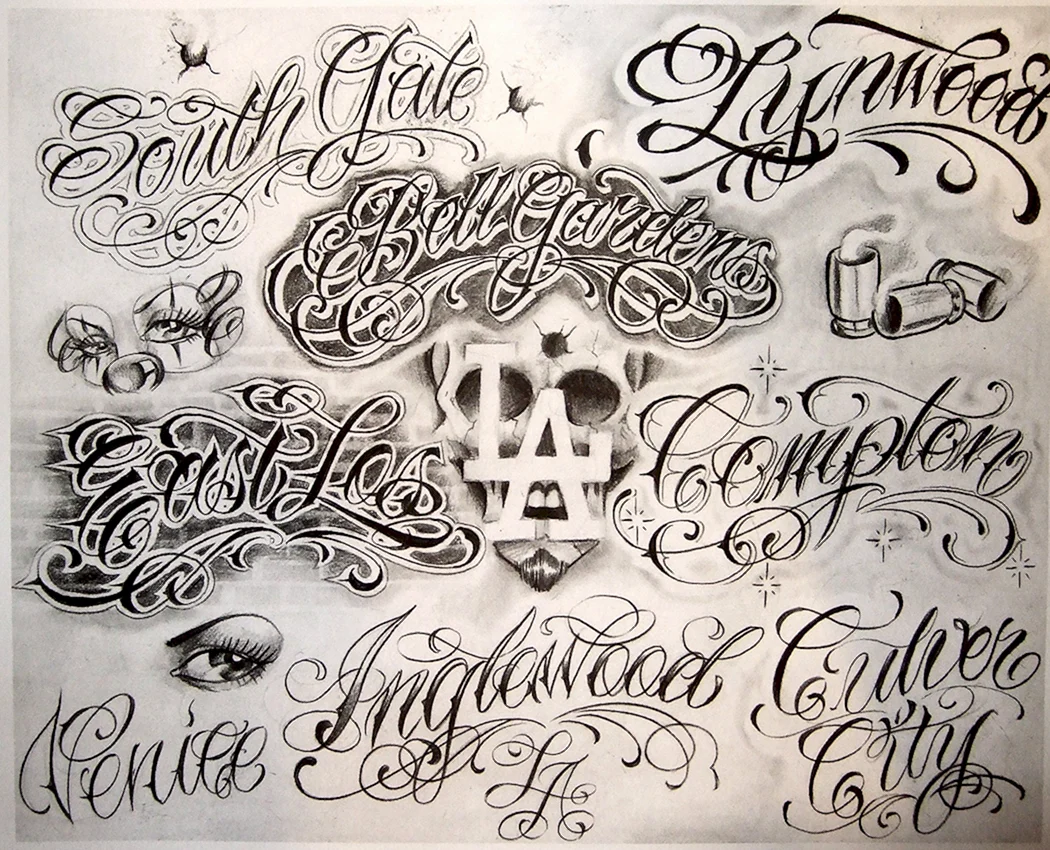 South Gate
Lynwood
Bell Gardens
LA
East Los
Compton
Inglewood
Culver
City
Venice
LA